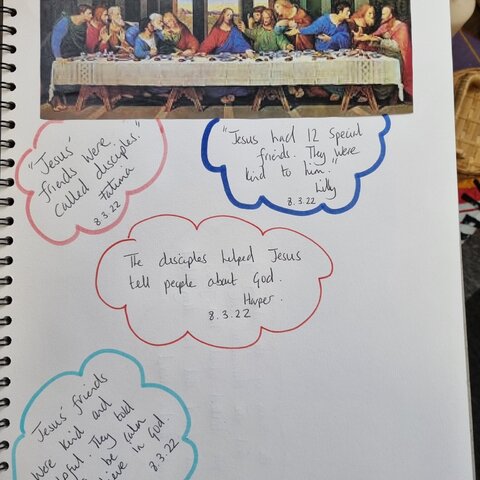 "Jesus'
friends were
called disciples."
Fatima
8.3.22
"Jesus had 12 special
friends. They were
kind to him."
Lilly
8.3.22
The disciples helped Jesus
tell people about God.
Harper.
8.3.22
Jesus' friends
were kind and
They told
be calm
in God.
8.3.22